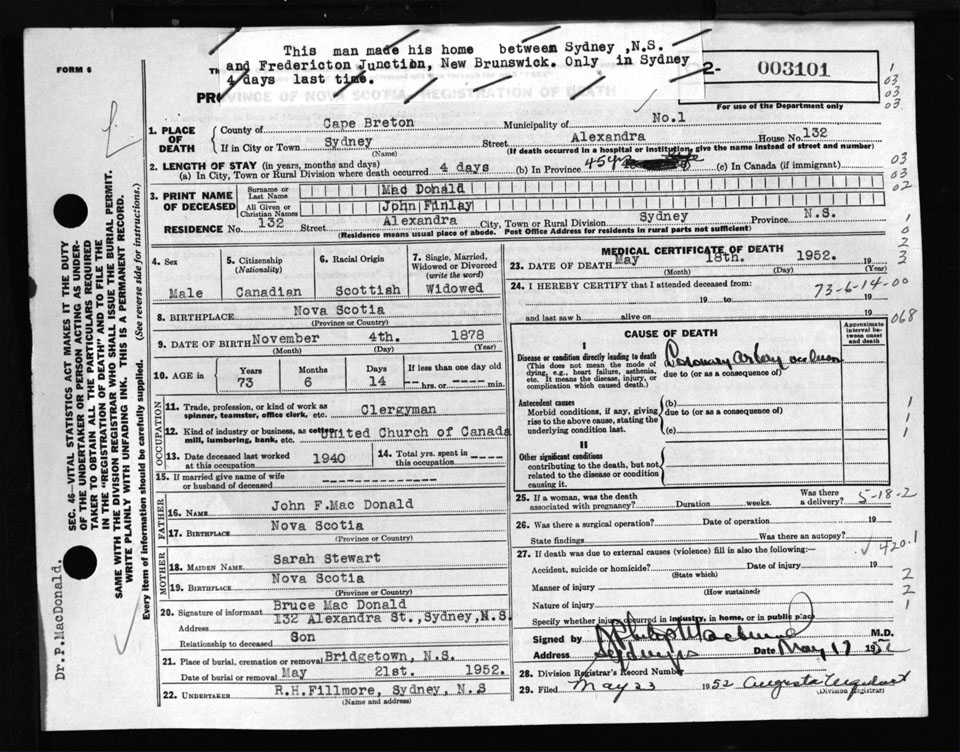 This man made his home between Sydney ,N.S.
and Fredericton Junction, New Brunswick. Only in Sydney
4 days last time.
FORM 6
PROVINCE OF NOVA SCOTIA, REGISTRATION OF DEATH
2- 003101
For use of the Department only
1. PLACE OF DEATH
County of Cape Breton Municipality of No.1
If in City or Town Sydney Street Alexandra House No. 132
(Name) (If death occurred in a hospital or institution, give the name instead of street and number)
2. LENGTH OF STAY (in years, months and days)
(a) In City, Town or Rural Division where death occurred 4 days (b) In Province 45 yrs (c) In Canada (if immigrant)
3. PRINT NAME OF DECEASED
Surname or Last Name Mac Donald
All Given or Christian Names John Finlay
RESIDENCE No. 132 Street Alexandra City, Town or Rural Division Sydney Province N.S.
(Residence means usual place of abode. Post Office Address for residents in rural parts not sufficient)
4. Sex
Male
5. Citizenship
(Nationality)
Canadian
6. Racial Origin
Scottish
7. Single, Married, Widowed or Divorced
(write the word)
Widowed
8. BIRTHPLACE Nova Scotia
(Province or Country)
9. DATE OF BIRTH November 4th. 1878
(Month) (Day) (Year)
10. AGE IN
Years Months Days If less than one day old
73 6 14 --- hrs. or ----- min.
OCCUPATION
11. Trade, profession, or kind of work as spinner, teamster, office clerk, etc. Clergyman
12. Kind of industry or business, as cotton mill, lumbering, bank, etc. United Church of Canada
13. Date deceased last worked at this occupation 1940
14. Total yrs. spent in this occupation ----
15. If married give name of wife or husband of deceased --------------
FATHER
16. NAME John F.Mac Donald
17. BIRTHPLACE Nova Scotia
(Province or Country)
MOTHER
18. MAIDEN NAME Sarah Stewart
19. BIRTHPLACE Nova Scotia
(Province or Country)
20. Signature of informant Bruce Mac Donald
Address 132 Alexandra St.,Sydney,N.S.
Relationship to deceased Son
21. Place of burial, cremation or removal Bridgetown, N.S.
Date of burial or removal May 21st. 1952.
22. UNDERTAKER R.H.Fillmore, Sydney, N.S
(Name and address)
MEDICAL CERTIFICATE OF DEATH
23. DATE OF DEATH May 18th. 1952. 19
(Month) (Day) (Year)
24. I HEREBY CERTIFY that I attended deceased from:
73-6-14-00
19 to 19
and last saw h alive on 19
068
CAUSE OF DEATH
Approximate interval between onset and death
I
Disease or condition directly leading to death
(This does not mean the mode of dying, e.g., heart failure, asthenia, etc. It means the disease, injury, or complication which caused death.)
Coronary artery occlusion
due to (or as a consequence of)
Antecedent causes
Morbid conditions, if any, giving rise to the above cause, stating the underlying condition last.
(b)
due to (or as a consequence of)
(c)
II
Other significant conditions
contributing to the death, but not related to the disease or condition causing it.
25. If a woman, was the death associated with pregnancy? Duration weeks. Was there a delivery?
5-18-2
26. Was there a surgical operation? Date of operation 19
State findings Was there an autopsy?
420.1
27. If death was due to external causes (violence) fill in also the following:-
Accident, suicide or homicide? Date of injury 19
(State which)
Manner of injury
(How sustained)
Nature of injury
Specify whether injury occurred in industry, in home, or in public place
Signed by M.D.
Address Sydney NS Date May 19 1952
28. Division Registrar's Record Number
29. Filed May 23 1952 Augusta Urquhart
(Division Registrar)
SEC. 46—VITAL STATISTICS ACT MAKES IT THE DUTY
OF THE UNDERTAKER OR PERSON ACTING AS UNDER-
TAKER TO OBTAIN ALL THE PARTICULARS REQUIRED
IN THE "REGISTRATION OF DEATH" AND TO FILE THE
SAME WITH THE DIVISION REGISTRAR WHO SHALL ISSUE THE BURIAL PERMIT.
WRITE PLAINLY WITH UNFADING INK. THIS IS A PERMANENT RECORD.
Every item of information should be carefully supplied. (See reverse side for instructions.)
Dr.P.MacDonald.